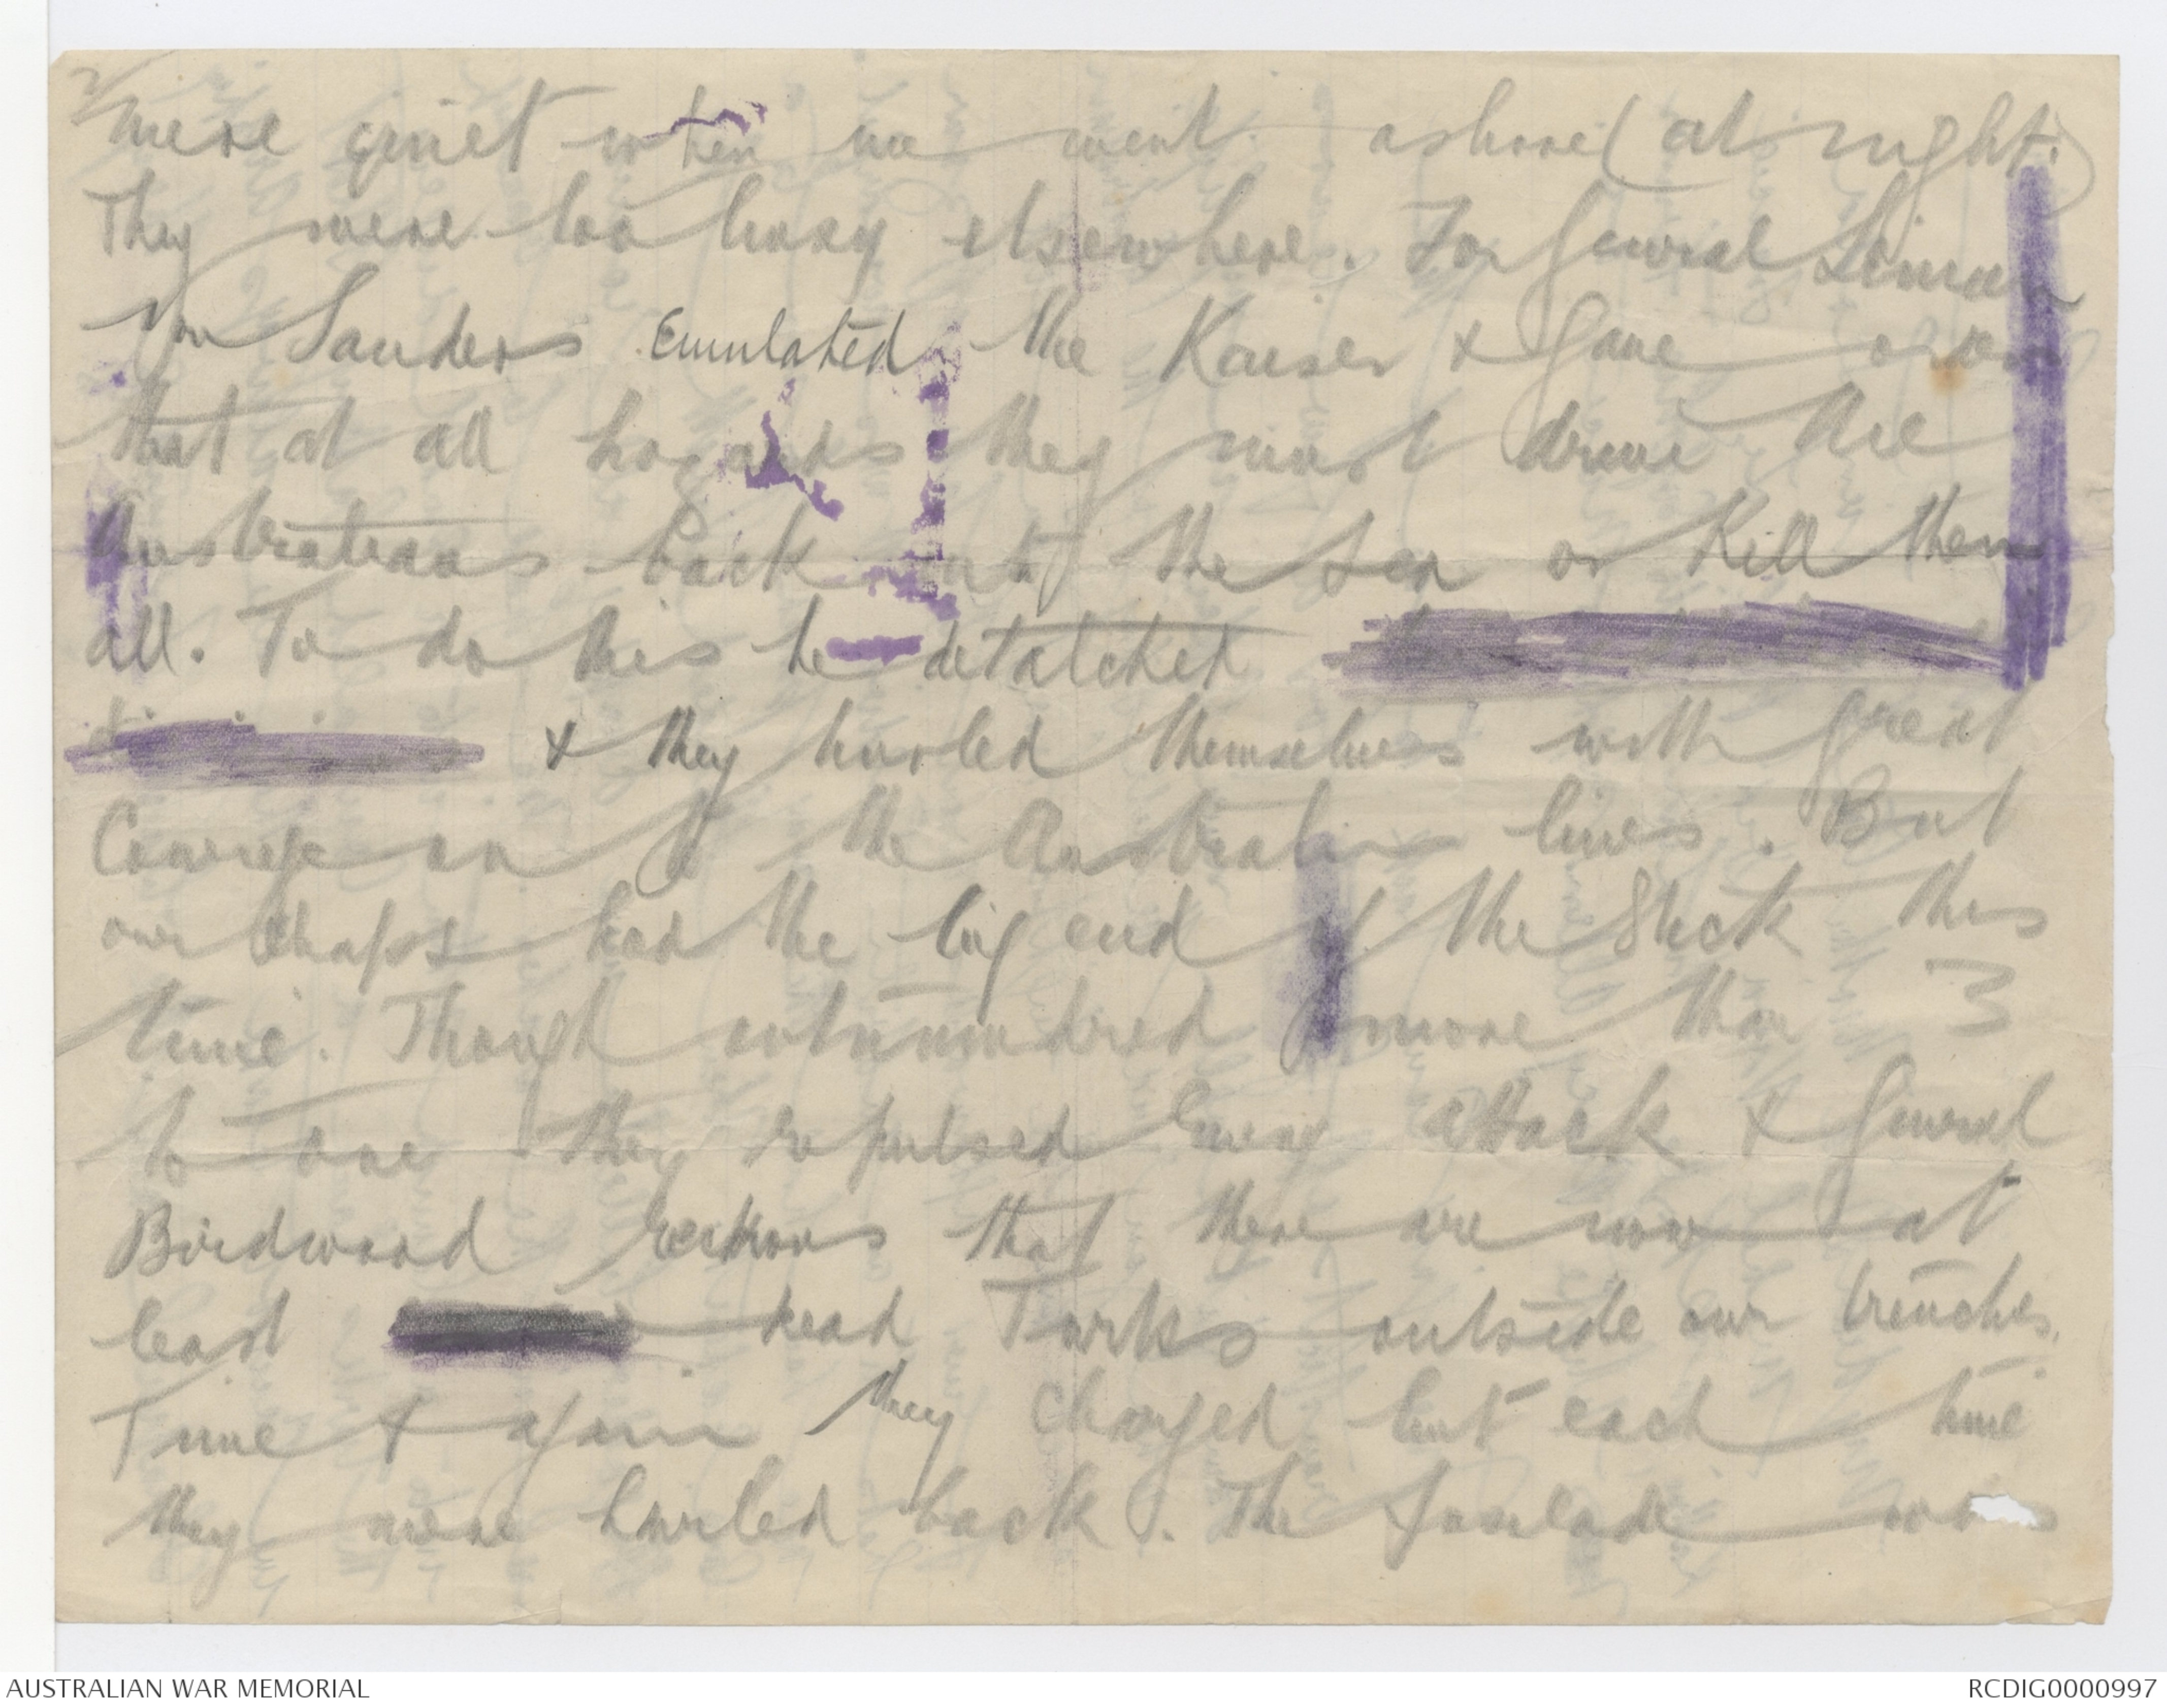 2/
were quiet when we went ashore (at night.)
They were too busy elsewhere. For General Liman
Von Sanders Emulated the Kaiser & gave orders
that at all hazards they must drive the
Australians back into the sea or Kill them
all. To do this he detatched
& they hurled themselves with great
Courage on to the Australian lines. But
our Chaps had the big end of the Stick this
time. Though outnumbered more than 3
to one they repulsed Every attack & General
Birdwood reckons that there are now at
least dead Turks outside our trenches.
Time & again they charged but each time
they were hurled back. The fusilade was
AUSTRALIAN WAR MEMORIAL
RCDIG0000997